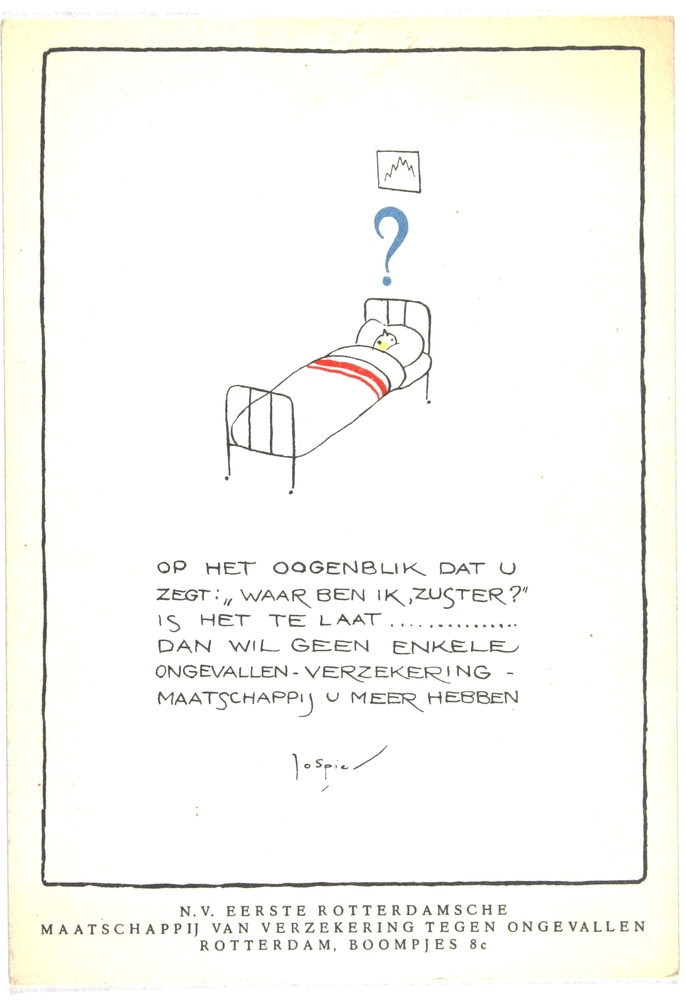 ?
OP HET OOGENBLIK DAT U
ZEGT: „WAAR BEN IK, ZUSTER?"
IS HET TE LAAT ...............
DAN WIL GEEN ENKELE
ONGEVALLEN-VERZEKERING -
MAATSCHAPPIJ U MEER HEBBEN
JoSpier
N.V. EERSTE ROTTERDAMSCHE
MAATSCHAPPIJ VAN VERZEKERING TEGEN ONGEVALLEN
ROTTERDAM, BOOMPJES 8c